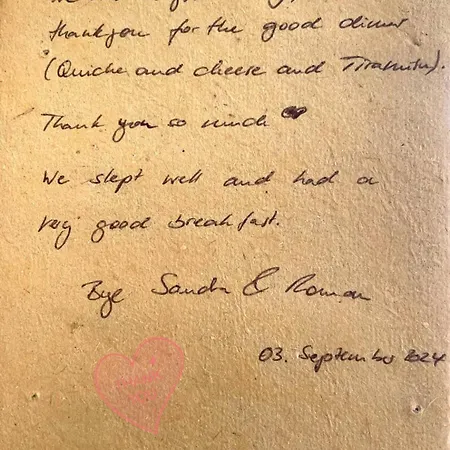 thankyou for the good dinner
(Quiche and cheese and Tiramisu).
Thank you so much
We slept well and had a
very good breakfast.
Bye Sandra & Roman
03. September 2024